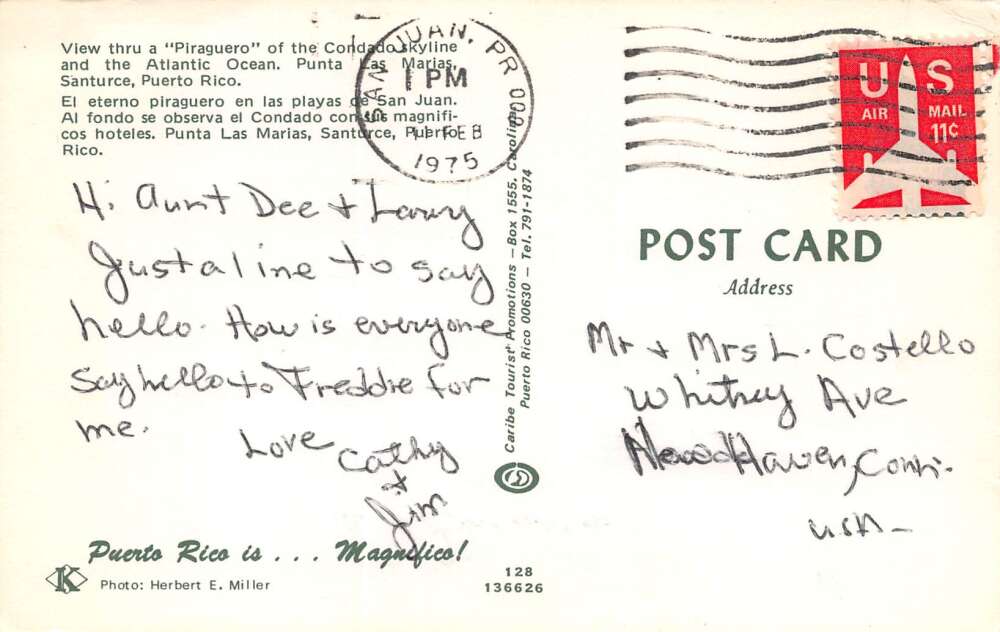 View thru a "Piraguero" of the Condado skyline
and the Atlantic Ocean. Punta Las Marias,
Santurce, Puerto Rico.
El eterno piraguero en las playas de San Juan.
Al fondo se observa el Condado con sus magnifi-
cos hoteles. Punta Las Marias, Santurce, Puerto
Rico.
Hi Aunt Dee + Larry
Just a line to say
hello. How is everyone
Say hello to Freddie for
me.
Love
Cathy
+
Jim
Puerto Rico is . . . Magnifico!
K
Photo: Herbert E. Miller
128
136626
Caribe Tourist Promotions – Box 1555, Carolina,
Puerto Rico 00630 – Tel. 791-1874
SAN JUAN, PR
1 PM
FEB
1975
US
AIR MAIL
11¢
POST CARD
Address
Mr + Mrs L. Costello
Whitney Ave
New Haven, Conn.
USA